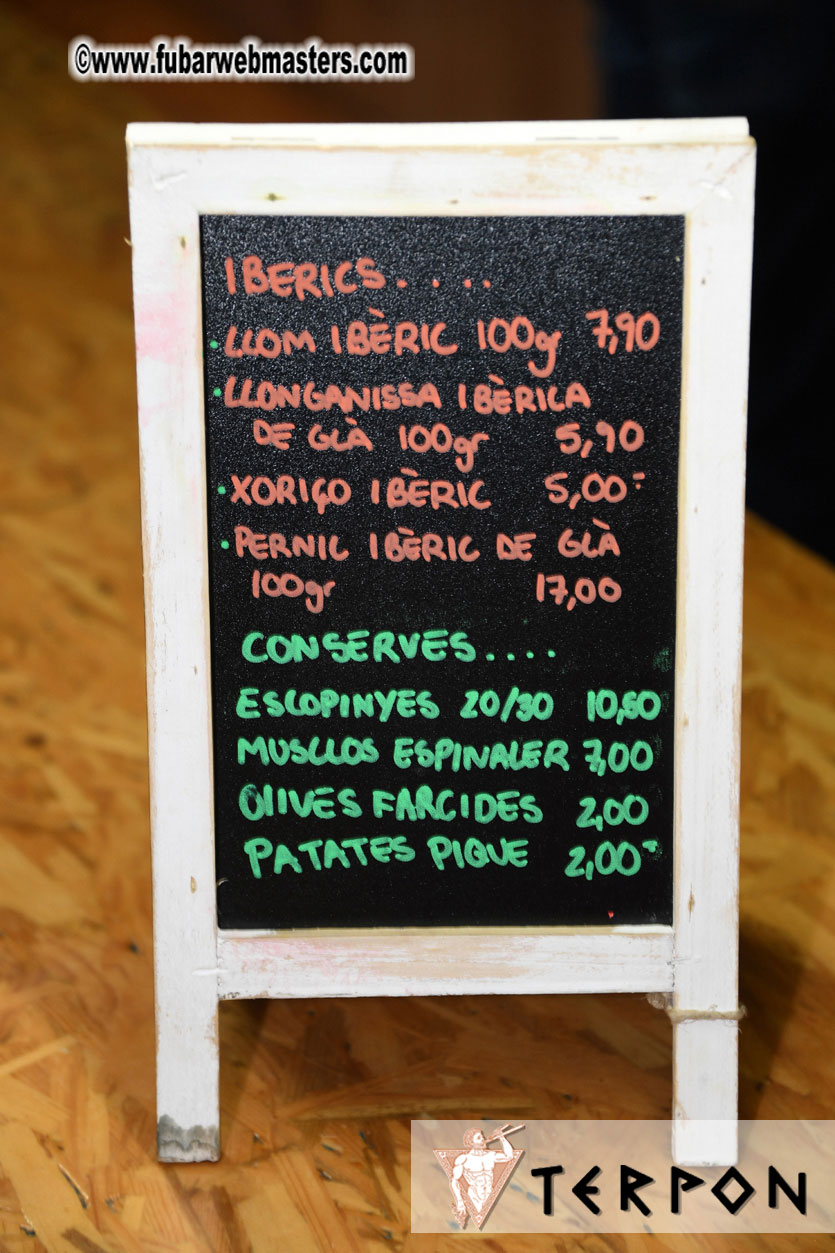 ©www.fubarwebmasters.com
IBERICS....
LLOM IBÈRIC 100gr 7,90
LLONGANISSA IBÈRICA
DE GLÀ 100gr 5,90
XORIÇO IBÈRIC 5,00
PERNIL IBÈRIC DE GLÀ
100gr 17,00
CONSERVES....
ESCOPINYES 20/30 10,50
MUSCLOS ESPINALER 7,00
OLIVES FARCIDES 2,00
PATATES PIQUE 2,00
TERPON